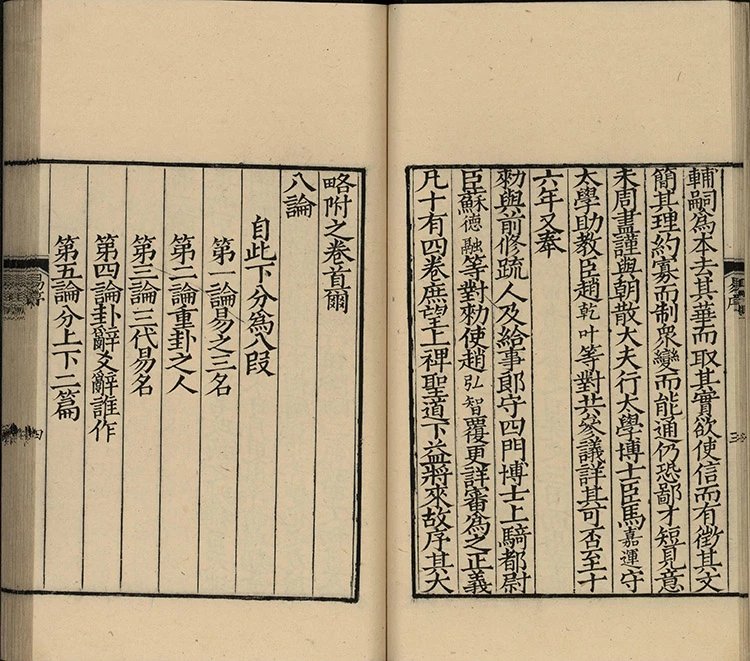 輔嗣爲本去其華而取其實欲使信而有徵其文
簡其理約寡而制衆變而能通仍恐鄙才短見意
未周盡謹與朝散大夫行太學博士臣馬嘉運守
太學助教臣趙乾叶等對共參議詳其可否至十
六年又奉
勑與前修疏人及給事郎守四門博士上騎都尉
臣蘇德融等對勑使趙弘智覆更詳審爲之正義
凡十有四卷庶望上裨聖道下益將來故序其大
略附之卷首爾
八論
自此下分爲八段
第一論易之三名
第二論重卦之人
第三論三代易名
第四論卦辭爻辭誰作
第五論分上下二篇
三
四